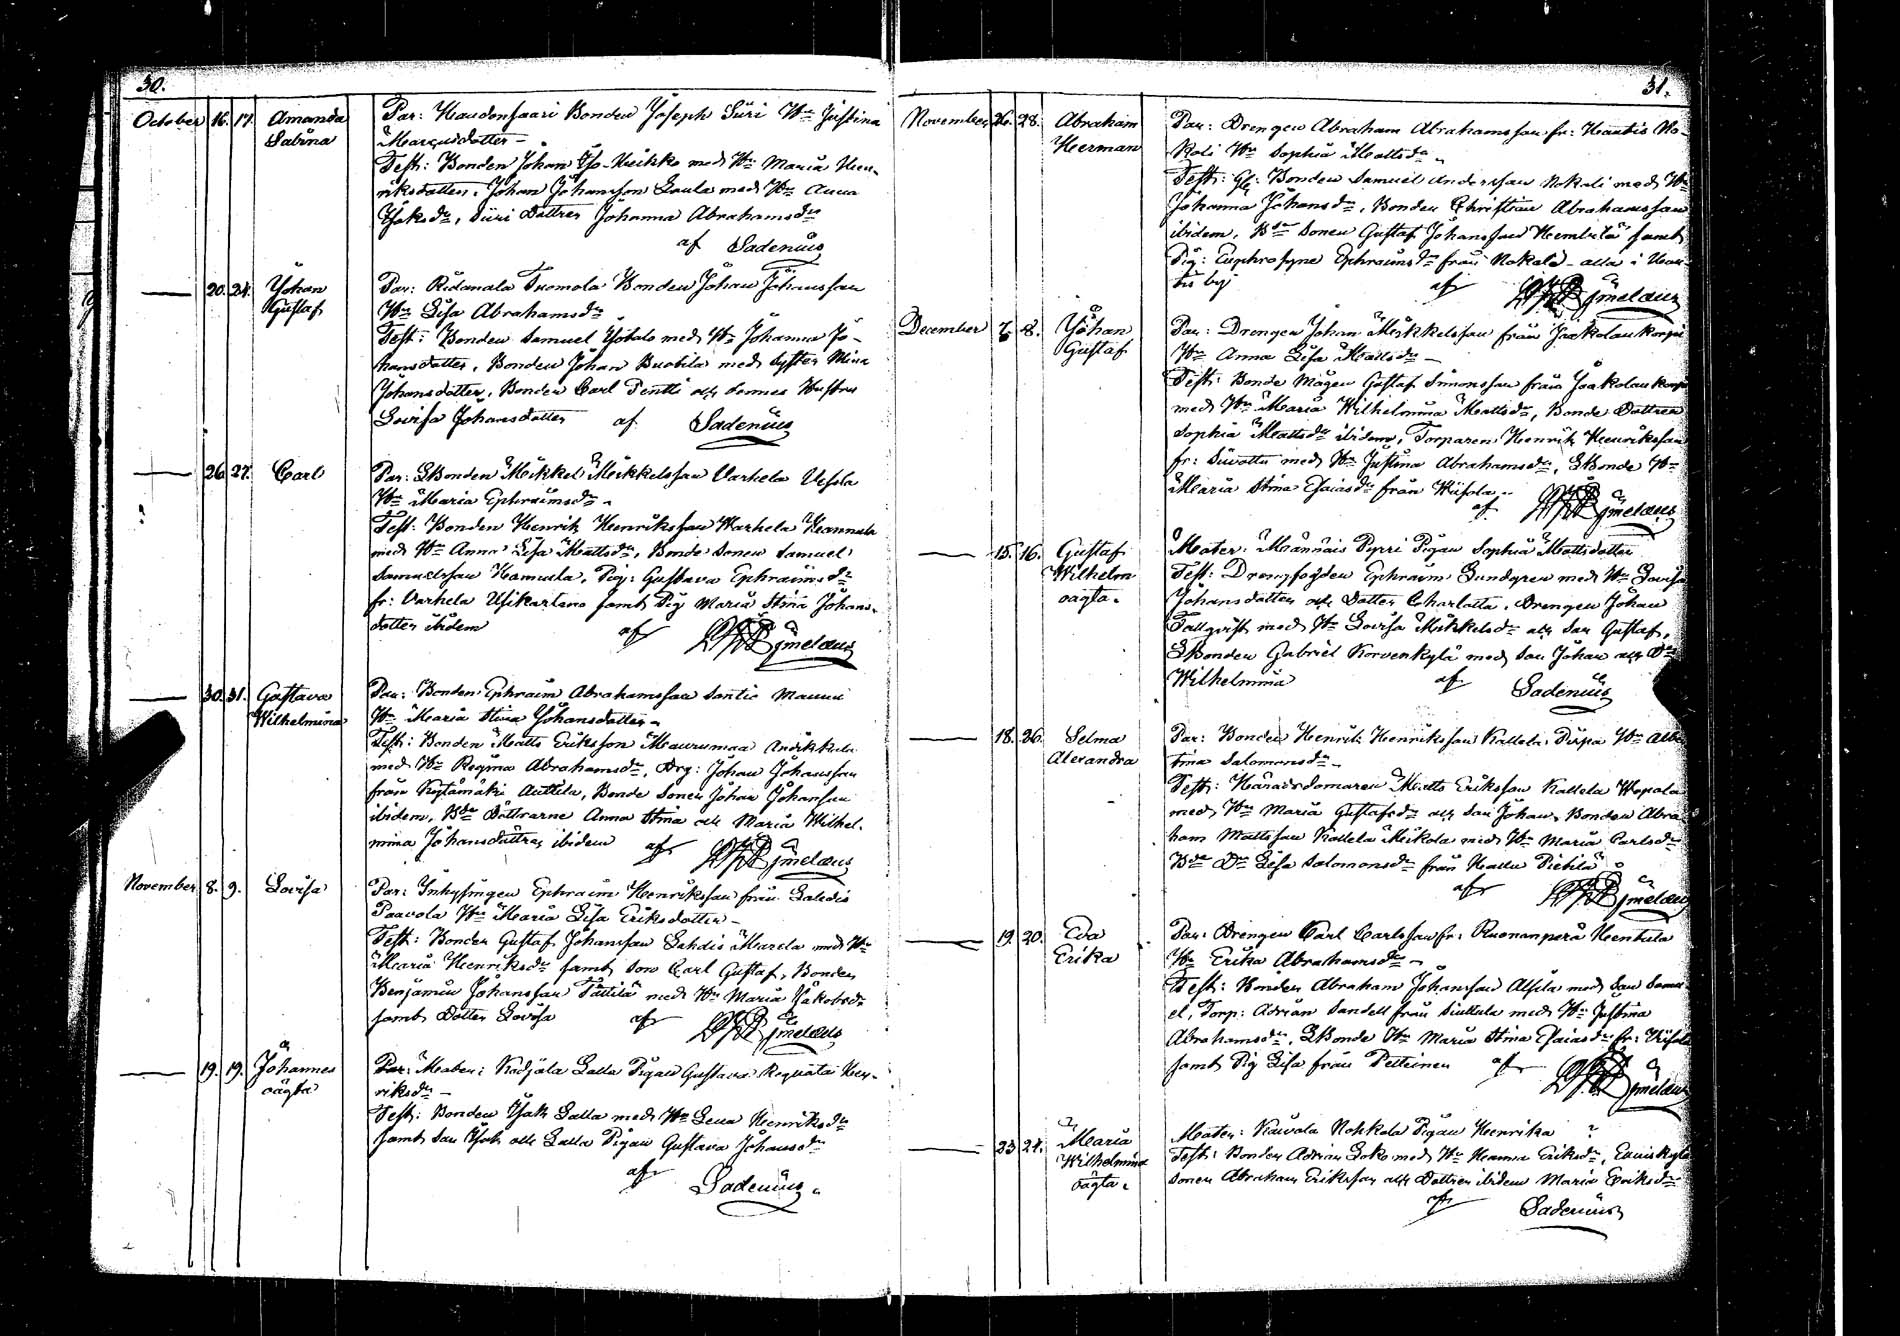 30.
October 16. 17. Amanda Sabina
Par: Haudonsaari Bonden Joseph Siiri Hu Justina
Marcusdotter
Test: Bonden Johan Iso-Heikko med Hu Maria Hen-
riksdotter, Johan Johansson Laula med Hu Anna
Isaksdr, Siiri Dottren Johanna Abrahamsdr
af Sadenius
20. 21. Johan Gustaf
Par: Ridamala Tuomola Bonden Johan Johansson
Hu Lisa Abrahamsdr
Test: Bonden Samuel med Hu Johanna Jo-
hansdotter, Bonden Johan med Syster Mina
Johansdotter, Bonden Carl Pentti och dennes Hustru
Lovisa Johansdotter af Sadenius
26. 27. Carl
Par: LBonden Mikkel Mikkelsson Varhela Vesola
Hu Maria Ephraimsdr
Test: Bonden Henrik Henriksson Warhela Hannula
med Hu Anna Lisa Mattsdr, Bonde Sonen Samuel
Samuelsson Hamula, Pig: Gustava Ephraimsdr
fr: Varhela Usikartano samt Pig Maria Stina Johans-
dotter ibidem af
30. 31. Gustava Wilhelmina
Par: Bonden Ephraim Abrahamsson Santio Mannu
Hu Maria Stina Johansdotter
Test: Bonden Matts Eriksson Maurumaa Anikkala
med Hu Regina Abrahamsdr, Drg: Johan Johansson
från Kylämäki Anttila, Bonde Sonen Johan Johansson
ibidem, Bde Döttrarne Anna Stina och Maria Wilhel-
mina Johansdöttrar ibidem af
November 8. 9. Lovisa
Par: Inhysingen Ephraim Henriksson från Saledis
Paavola Hu Maria Lisa Eriksdotter
Test: Bonden Gustaf Johansson Lahdis Marela med Hu
Maria Henriksdr samt Son Carl Gustaf, Bonden
Benjamin Johansson Tättilä med Hu Maria Jakobsdr
samt Dotter Lovisa af
19. 19. Johannes oägta
Par: Mater: Kodjala Lalla Pigan Gustava Regnata Hen-
riksdr
Test: Bonden Isak Lalla med Hu Lena Henriksdr
samt Son Isak och Lalla Pigan Gustava Johansdr
af
Sadenius
31.
November 26. 28. Abraham Herman
Par: Drengen Abraham Abrahamsson fr: Hautis No-
koli Hu Sophia Mattsdr
Test: Gl: Bonden Samuel Andersson Nokoli med Hu
Johanna Johansdr, Bonden Christian Abrahamsson
ibidem, Bde Sonen Gustaf Johansson Hembilä samt
Pig: Euphrosyne Ephraimsdr från Nokoli - alla i Hau-
tis by af
December 8. Johan Gustaf
Par: Drengen Johan Mikkelsson från Jaakolankorpi
Hu Anna Lisa Mattsdr
Test: Bonde Mågen Gustaf Simonsson från Jaakolankorpi
med Hu Maria Wilhelmina Mattsdr, Bonde Dottren
Sophia Mattsdr ibidem, Torparen Henrik Henriksson
fr: med Hu Justina Abrahamsdr, LBonde Hu
Maria Stina Esaiasdr från
af
15. 16. Gustaf Wilhelm oägta.
Mater: Männäis Pyrri Pigan Sophia Mattsdotter
Test: Drengfogden Ephraim Lundgren med Hu Lovisa
Johansdotter och Dotter Charlotta, Drengen Johan
Tallqvist med Hu Lovisa Mikkelsdr och Son Gustaf,
LBonden Gabriel Korvenkylä med Son Johan och Dr
Wilhelmina af Sadenius
18. 26. Selma Alexandra
Par: Bonden Henrik Henriksson Kallela Hu Alber-
tina Salomonsdr
Test: Häradsdomaren Matts Eriksson Kallela
med Hu Maria Gustafsdr och Son Johan, Bonden Abra-
ham Mattsson Kallela Mikola med Hu Maria Carlsdr
Bde Dr Lisa Salomonsdr från Hallu Pietilä
af
19. 20. Eva Erika
Par: Drengen Carl Carlsson fr: Ruonanperä Hentula
Hu Erika Abrahamsdr
Test: Bonden Abraham Johansson Alsila med Son Samu-
el, Torp: Adrian Sandell från med Hu Justina
Abrahamsdr, LBonde Hu Maria Stina Esaiasdr fr:
samt Pig Lisa från Pelteinen af
23 24. Maria Wilhelmina oägta.
Mater: Kaivola Nohkola Pigan Henrika ?
Test: Bonden Adrian Loko med Hu Hanna Eriksdr,
Sonen Abraham Eriksson och Dottren ibidem Maria Eriksdr
af Sadenius